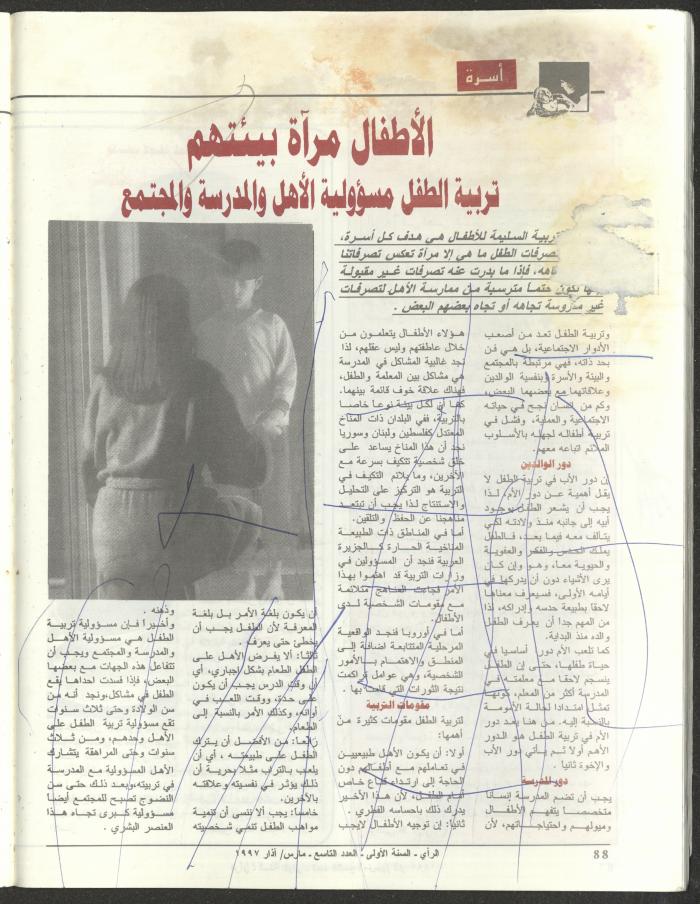 أسرة
الأطفال مرآة بيئتهم
تربية الطفل مسؤولية الأهل والمدرسة والمجتمع
تربية السليمة للأطفال هي هدف كل أسرة،
تصرفات الطفل ما هي إلا مرآة تعكس تصرفاتنا
فإذا ما بدرت عنه تصرفات غير مقبولة
يكون حتماً مترسبة من ممارسة الأهل لتصرفات
غير مدروسة تجاهه أو تجاه بعضهم البعض.
وتربية الطفل تعد من أصعب
الأدوار الاجتماعية، بل هي فن
بحد ذاته، فهي مرتبطة بالمجتمع
والبيئة والأسرة وبنفسية الوالدين
وعلاقاتهما مع بعضهما البعض،
وكم من إنسان نجح في حياته
الاجتماعية والعملية، وفشل في
تربية أطفاله لجهله بالأسلوب
الملائم اتباعه معهم.
دور الوالدين
إن دور الأب في تربية الطفل لا
يقل أهمية عن دور الأم، لذا
يجب أن يشعر الطفل بوجود
أبيه إلى جانبه منذ ولادته لكي
يتآلف معه فيما بعد، فالطفل
يملك الحدس والفكر والعفوية
والحيوية معاً، وهو وإن كان
يرى الأشياء دون أن يدركها في
أيامه الأولى، فسيعرف معناها
لاحقا بطبيعة حدسه وإدراكه، لذا
من المهم جدا أن يعرف الطفل
والده منذ البداية.
كما تلعب الأم دور أساسيا في
حياة طفلها، حتى إن الطفل
ينسجم لاحقا مع معلمته في
المدرسة أكثر من المعلم، كونها
تمثل امتدادا لحالة الأمومة
بالنسبة إليه. من هنا يعد دور
الأم في تربية الطفل هو الدور
الأهم أولا ثم يأتي دور الأب
والإخوة ثانيا.
دور المدرسة
يجب أن تضم المدرسة إنسانا
متخصصاً يتفهم الأطفال
وميولهم واحتياجاتهم، لأن
هؤلاء الأطفال يتعلمون من
خلال عاطفتهم وليس عقلهم، لذا
نجد غالبية المشاكل في المدرسة
هي مشاكل بين المعلمة والطفل،
فهناك علاقة خوف قائمة بينهما.
كما أن لكل بيئة نوعا خاصا
بالتربية، ففي البلدان ذات المناخ
المعتدل كفلسطين ولبنان وسوريا
نجد أن هذا المناخ يساعد على
خلق شخصية تتكيف بسرعة مع
الآخرين، وما يلائم التكيف في
التربية هو التركيز على التحليل
والاستنتاج لذا يجب أن تبتعد
مناهجنا عن الحفظ والتلقين.
أما في المناطق ذات الطبيعة
المناخية الحارة كالجزيرة
العربية فنجد أن المسؤولين في
وزارات التربية قد اهتموا بهذا
الأمر فجاءت المناهج متلائمة
مع مقومات الشخصية لدى
الأطفال.
أما في أوروبا فنجد الواقعية
المرحلية المتتابعة اضافة إلى
المنطق والاهتمام بالأمور
الشخصية، وهي عوامل تراكمت
نتيجة الثورات التي قامت بها.
مقومات التربية
لتربية الطفل مقومات كثيرة من
أهمها:
أولا: أن يكون الأهل طبيعيين
في تعاملهم مع أطفالهم دون
الحاجة إلى ارتداء قناع خاص
أمام الطفل، لأن هذا الأخير
يدرك ذلك باحساسه الفطري.
ثانيا: إن توجيه الأطفال لايجب
أن يكون بلغة الأمر بل بلغة
المعرفة لأن الطفل يجب أن
يخطئ حتى يعرف.
ثالثا: ألا يفرض الأهل على
الطفل الطعام بشكل إجباري، أي
أن وقت الدرس يجب أن يكون
على حدة، ووقت اللعب في
أوانه، وكذلك الأمر بالنسبة إلى
الطعام.
رابعا: من الأفضل أن يترك
الطفل على طبيعته، أي أن
يلعب بالتراب مثلا بحرية أن
ذلك يؤثر في نفسيته وعلاقته
بالآخرين.
خامسا: يجب ألا ننسى أن تنمية
مواهب الطفل تنمي شخصيته
وذهنه.
وأخيرا فإن مسؤولية تربية
الطفل هي مسؤولية الأهل
والمدرسة والمجتمع ويجب أن
تتفاعل هذه الجهات مع بعضها
البعض، فإذا فسدت احداها يقع
الطفل في مشاكل، ونجد أنه من
سن الولادة وحتى ثلاث سنوات
تقع مسؤولية تربية الطفل على
الأهل وحدهم، ومن ثلاث
سنوات وحتى المراهقة يتشارك
الأهل المسؤولية مع المدرسة
في تربيته، وبعد ذلك حتى سن
النضوج تصبح للمجتمع أيضاً
مسؤولية كبرى تجاه هذا
العنصر البشري.
الرأي - السنة الأولى - العدد التاسع - مارس/ آذار ١٩٩٧
88